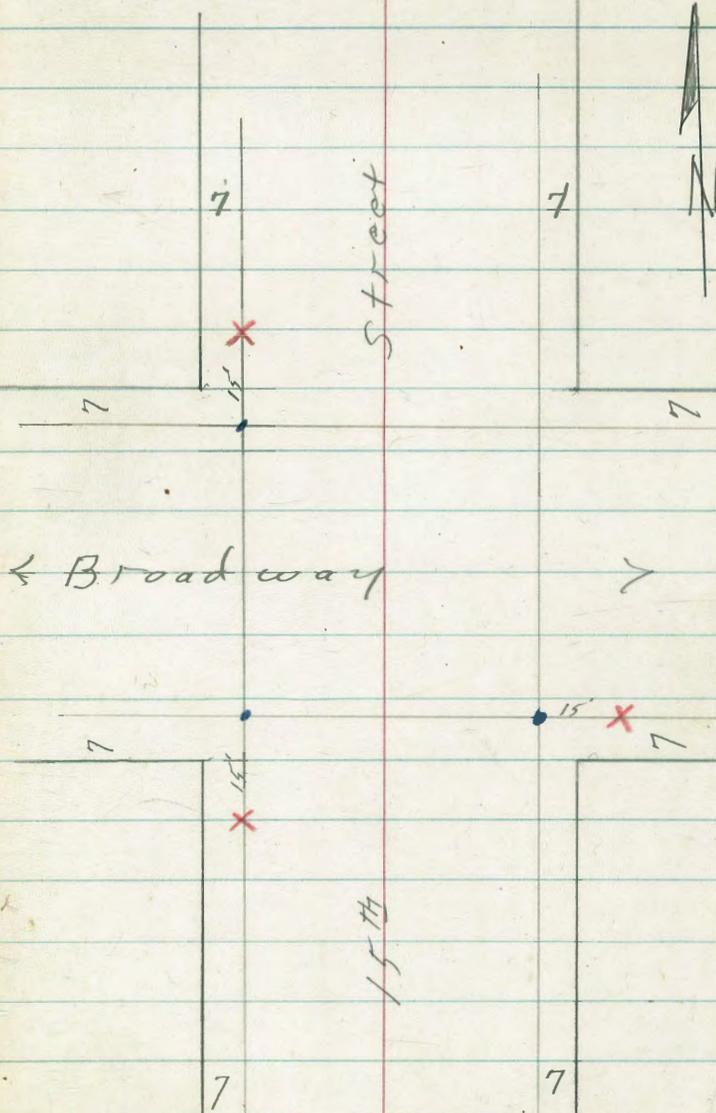 7 7 N
Street
15'
7 7
< Broadway >
15'
7 7
15'
15th
7 7